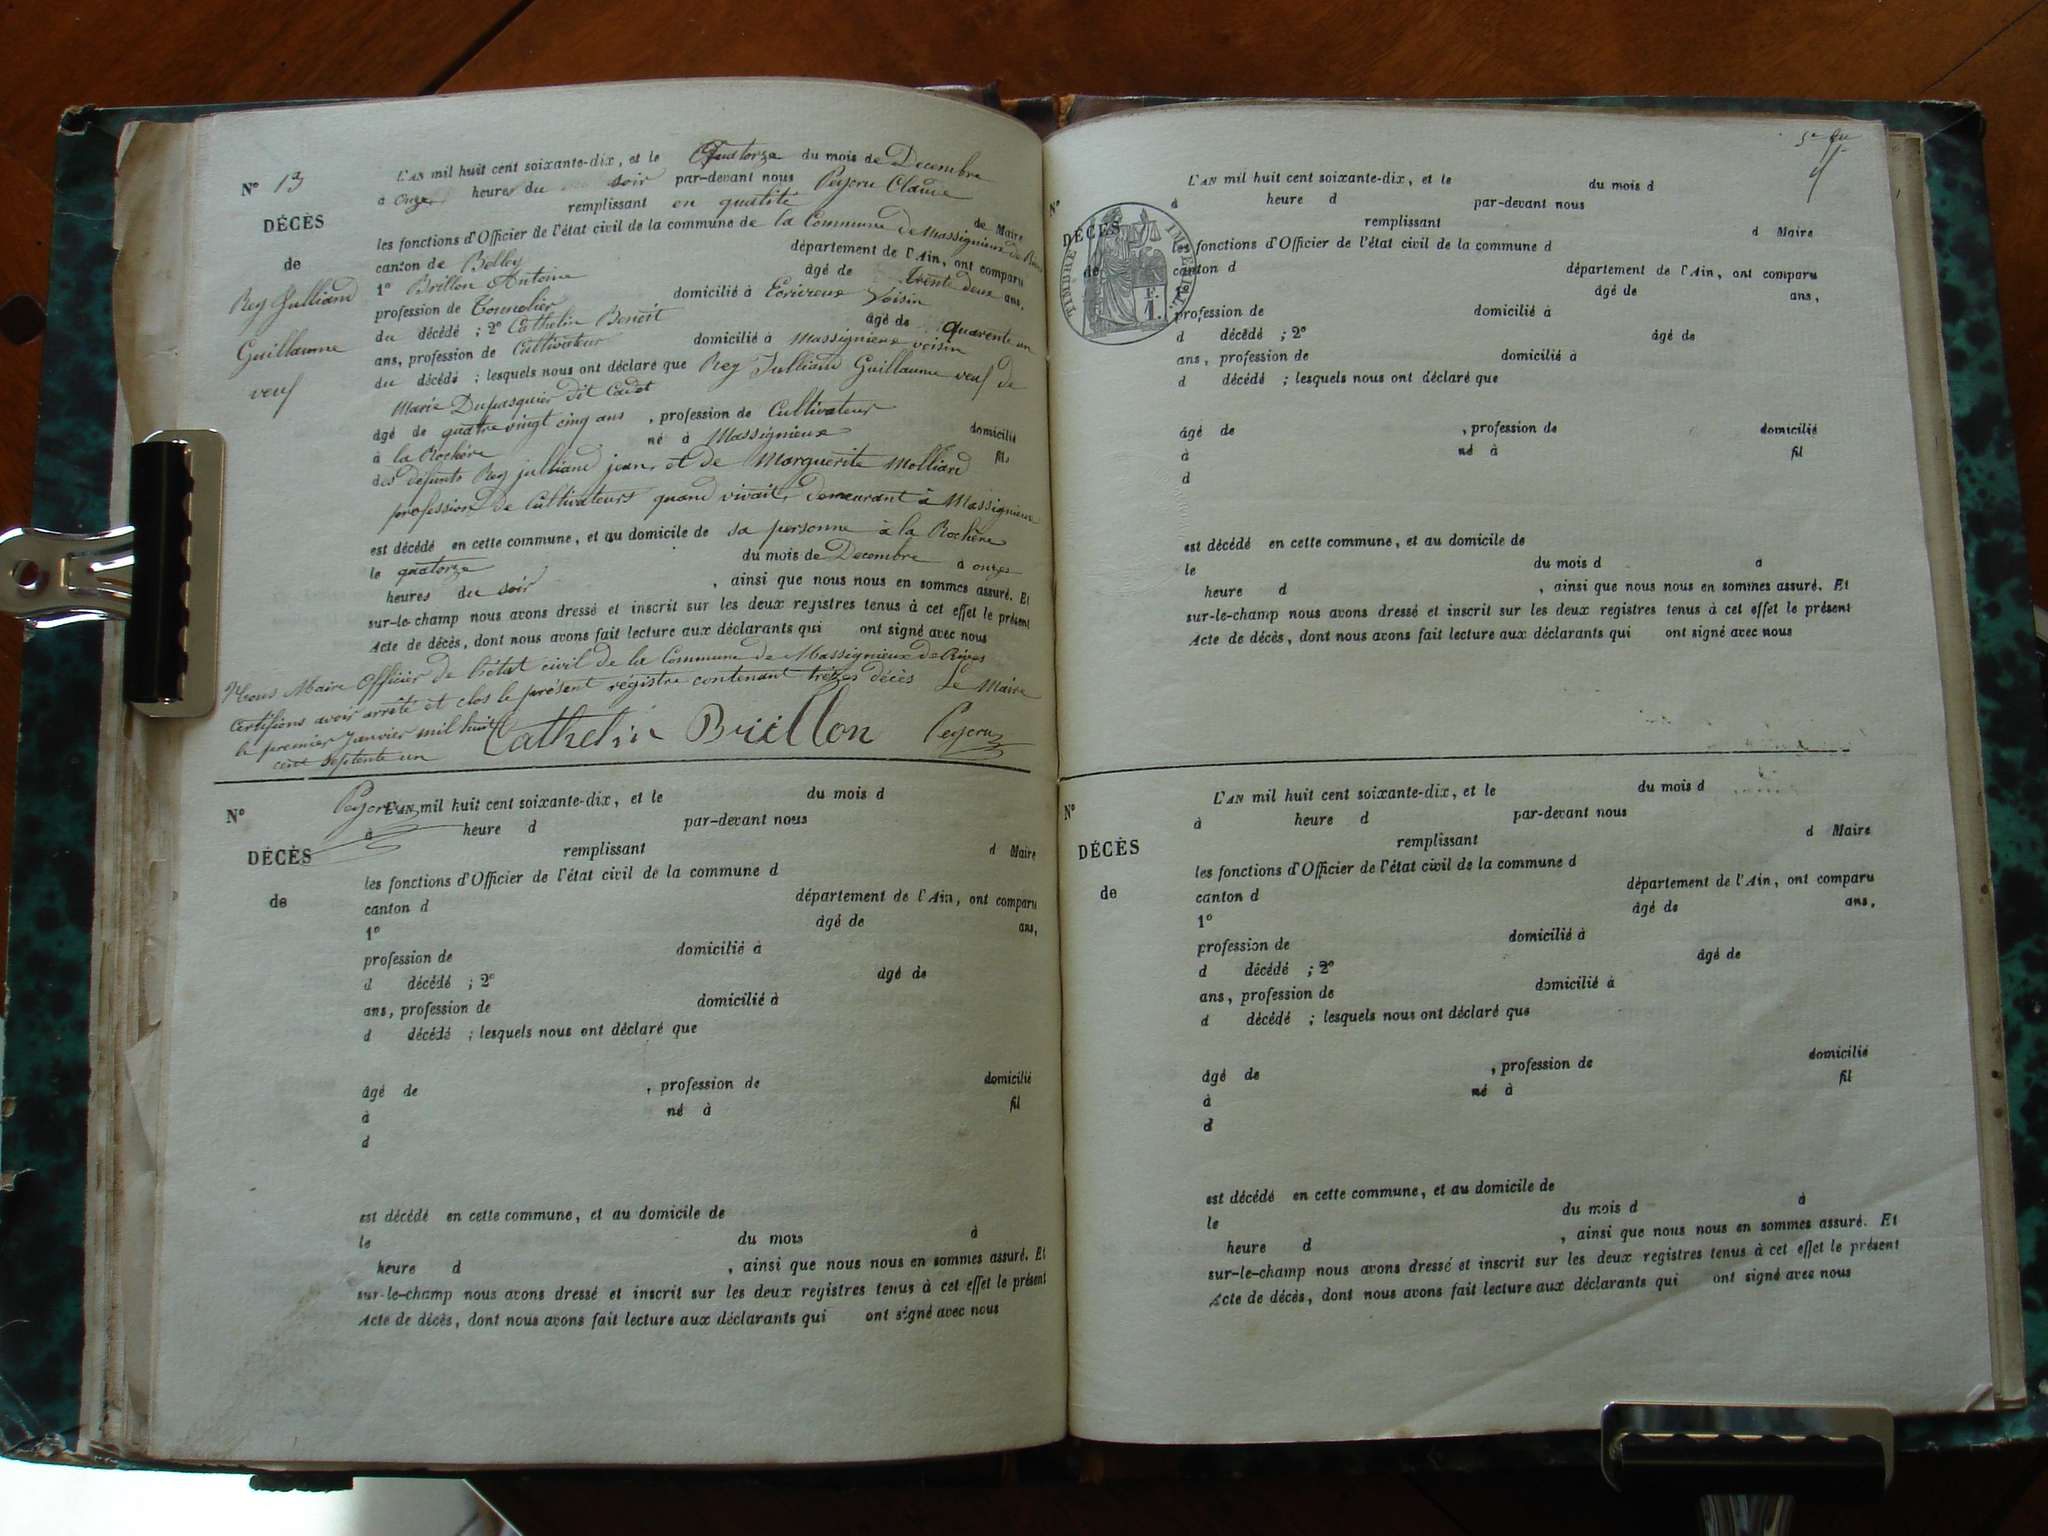 N° 13
DÉCÈS
de
Rey Julliand
Guillaume
veuf
L'AN mil huit cent soixante-dix, et le Quatorze du mois de Decembre
à onze heures du soir par-devant nous Peyson Claude
remplissant en qualité de Maire
les fonctions d'Officier de l'état civil de la commune de la Commune de Massignieux de Rives
canton de Belley département de l'Ain, ont comparu
1° Brillon Antoine âgé de trente deux ans,
profession de Tonnelier domicilié à Ecrivieux voisin
du décédé ; 2° Cathelin Benoit âgé de quarente un
ans, profession de Cultivateur domicilié à Massignieux voisin
du décédé ; lesquels nous ont déclaré que Rey Julliand Guillaume veuf de
Marie Dupasquier dit Cadet
âgé de quatre vingt cinq ans , profession de Cultivateur domicilié
à la Rochère né à Massignieux fils
des défunts Rey julliand jean, et de Marguerite Molliard
profession de Cultivateurs quand vivait, demeurant à Massignieux
est décédé en cette commune, et au domicile de sa personne à la Rochère
le quatorze du mois de Decembre à onzes
heures du soir , ainsi que nous nous en sommes assuré. Et
sur-le-champ nous avons dressé et inscrit sur les deux registres tenus à cet effet le présent
Acte de décès, dont nous avons fait lecture aux déclarants qui ont signé avec nous
Nous Maire Officier de l'état civil de la Commune de Massignieux de Rives
Certifions avoir arrêté et clos le présent régistre contenant trèzes décès Le Maire
le premier Janvier mil huit
cent septente un
Cathelin Brillon
N°
DÉCÈS
de
L'AN mil huit cent soixante-dix, et le du mois d
à heure d par-devant nous
remplissant d Maire
les fonctions d'Officier de l'état civil de la commune d
canton d département de l'Ain, ont comparu
1° âgé de ans,
profession de domicilié à
d décédé ; 2° âgé de
ans, profession de domicilié à
d décédé ; lesquels nous ont déclaré que
âgé de , profession de domicilié
à né à fil
d
est décédé en cette commune, et au domicile de
le du mois à
heure d , ainsi que nous nous en sommes assuré. Et
sur-le-champ nous avons dressé et inscrit sur les deux registres tenus à cet effet le présent
Acte de décès, dont nous avons fait lecture aux déclarants qui ont signé avec nous
N°
DÉCÈS
de
TIMBRE IMPÉRIAL
F.
1.
L'AN mil huit cent soixante-dix, et le du mois d
à heure d par-devant nous
remplissant d Maire
les fonctions d'Officier de l'état civil de la commune d
canton d département de l'Ain, ont comparu
1° âgé de ans,
profession de domicilié à
d décédé ; 2° âgé de
ans, profession de domicilié à
d décédé ; lesquels nous ont déclaré que
âgé de , profession de domicilié
à né à fil
d
est décédé en cette commune, et au domicile de
le du mois d à
heure d , ainsi que nous nous en sommes assuré. Et
sur-le-champ nous avons dressé et inscrit sur les deux registres tenus à cet effet le présent
Acte de décès, dont nous avons fait lecture aux déclarants qui ont signé avec nous
N°
DÉCÈS
de
L'AN mil huit cent soixante-dix, et le du mois d
à heure d par-devant nous
remplissant d Maire
les fonctions d'Officier de l'état civil de la commune d
canton d département de l'Ain, ont comparu
1° âgé de ans,
profession de domicilié à
d décédé ; 2° âgé de
ans, profession de domicilié à
d décédé ; lesquels nous ont déclaré que
âgé de , profession de domicilié
à né à fil
d
est décédé en cette commune, et au domicile de
le du mois d à
heure d , ainsi que nous nous en sommes assuré. Et
sur-le-champ nous avons dressé et inscrit sur les deux registres tenus à cet effet le présent
Acte de décès, dont nous avons fait lecture aux déclarants qui ont signé avec nous